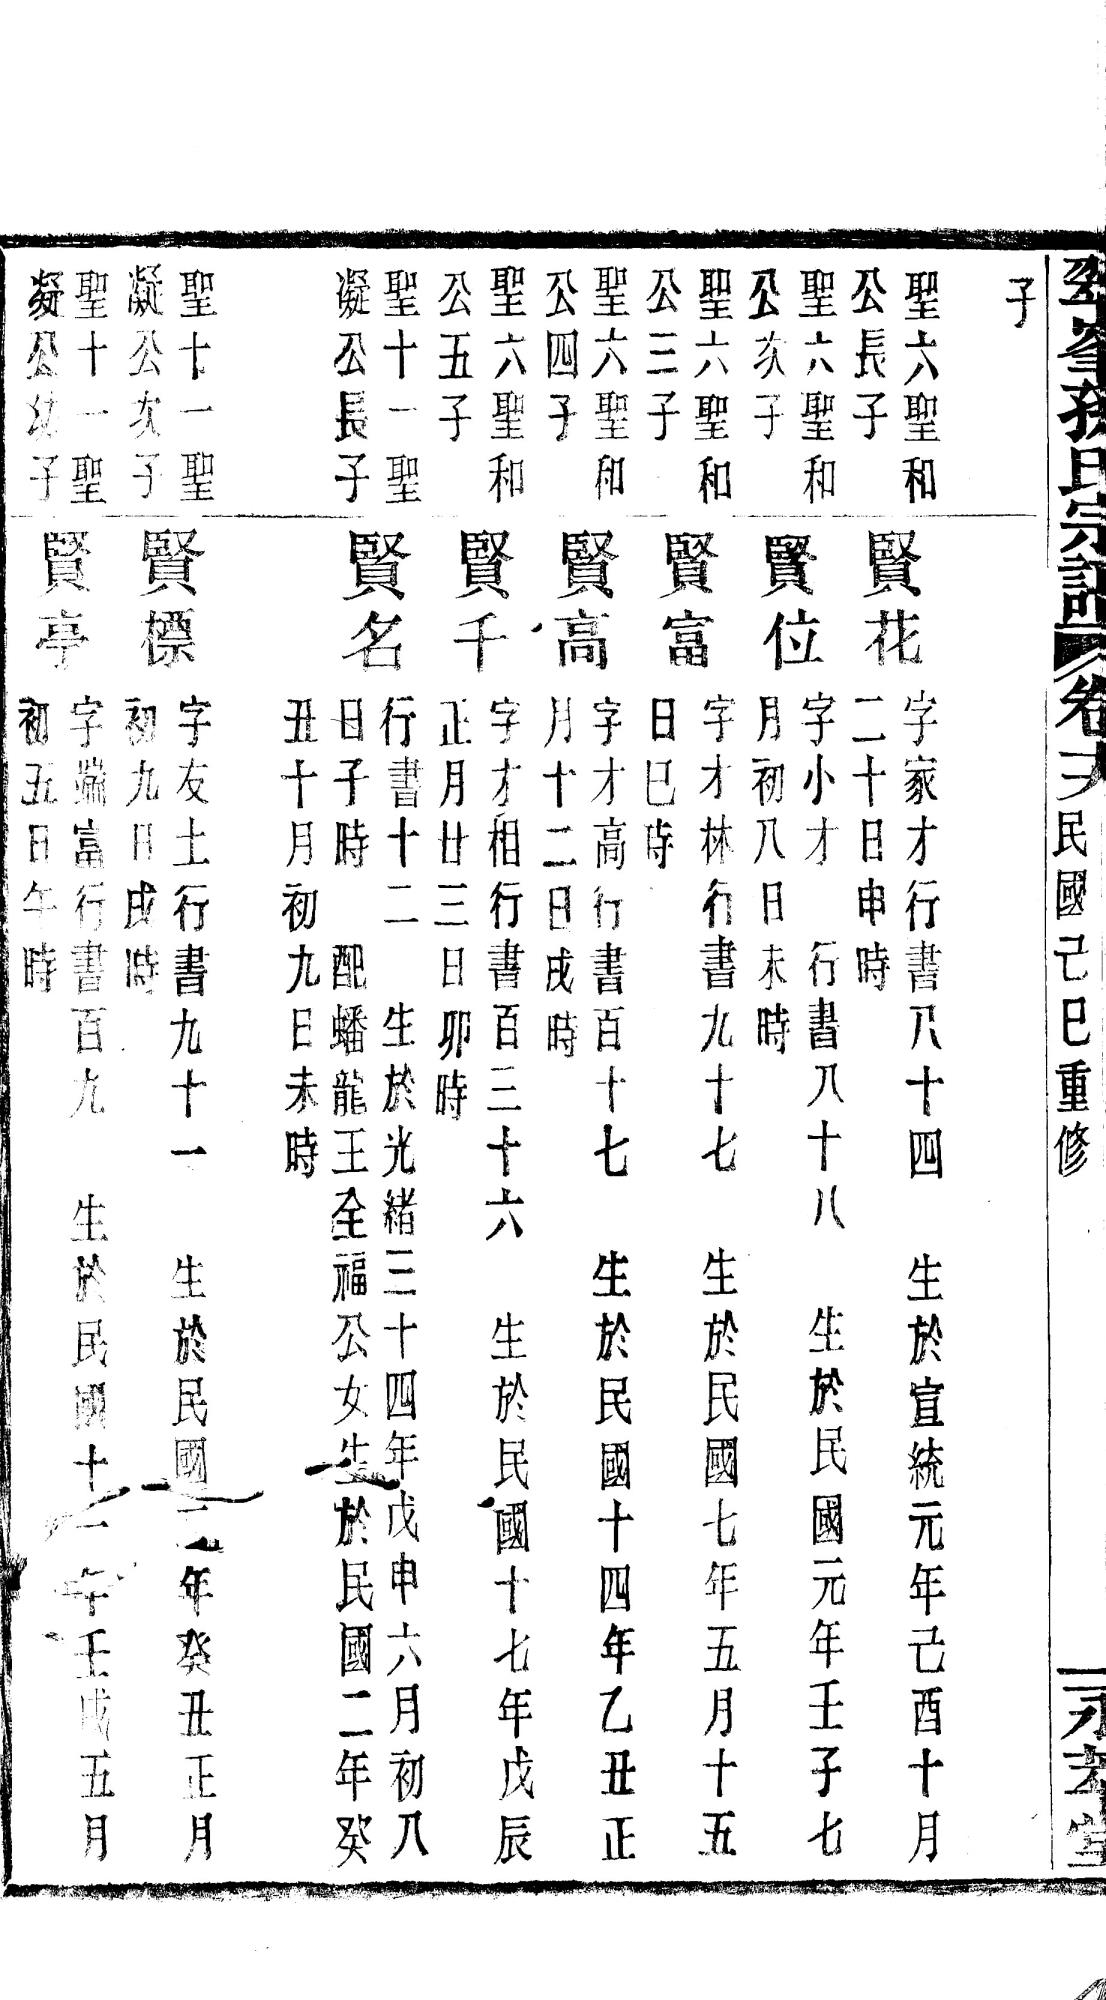 峯孫氏宗譜
卷
民國己巳重修
永
堂
子
聖六聖和
公長子
賢花
字家才行書八十四　生於宣統元年己酉十月
二十日申時
聖六聖和
公次子
賢位
字小才　行書八十八　生於民國元年壬子七
月初八日未時
聖六聖和
公三子
賢富
字才林行書九十七　生於民國七年五月十五
日巳時
聖六聖和
公四子
賢高
字才高行書百十七　生於民國十四年乙丑正
月十二日戌時
聖六聖和
公五子
賢千
字才相行書百三十六　生於民國十七年戊辰
正月廿三日卯時
聖十一聖
凝公長子
賢名
行書十二　生於光緒三十四年戊申六月初八
日子時　配蟠龍王全福公女生於民國二年癸
丑十月初九日未時
聖十一聖
凝公次子
賢標
字友土行書九十一　生於民國二年癸丑正月
初九日戌時
聖十一聖
凝公幼子
賢亭
字端富行書百九　生於民國十一年壬戌五月
初五日午時